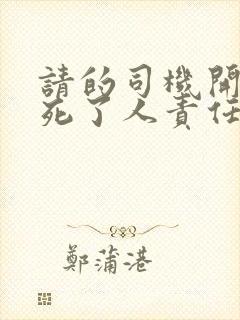 請的司機開
死了人責任
鄭蒲港